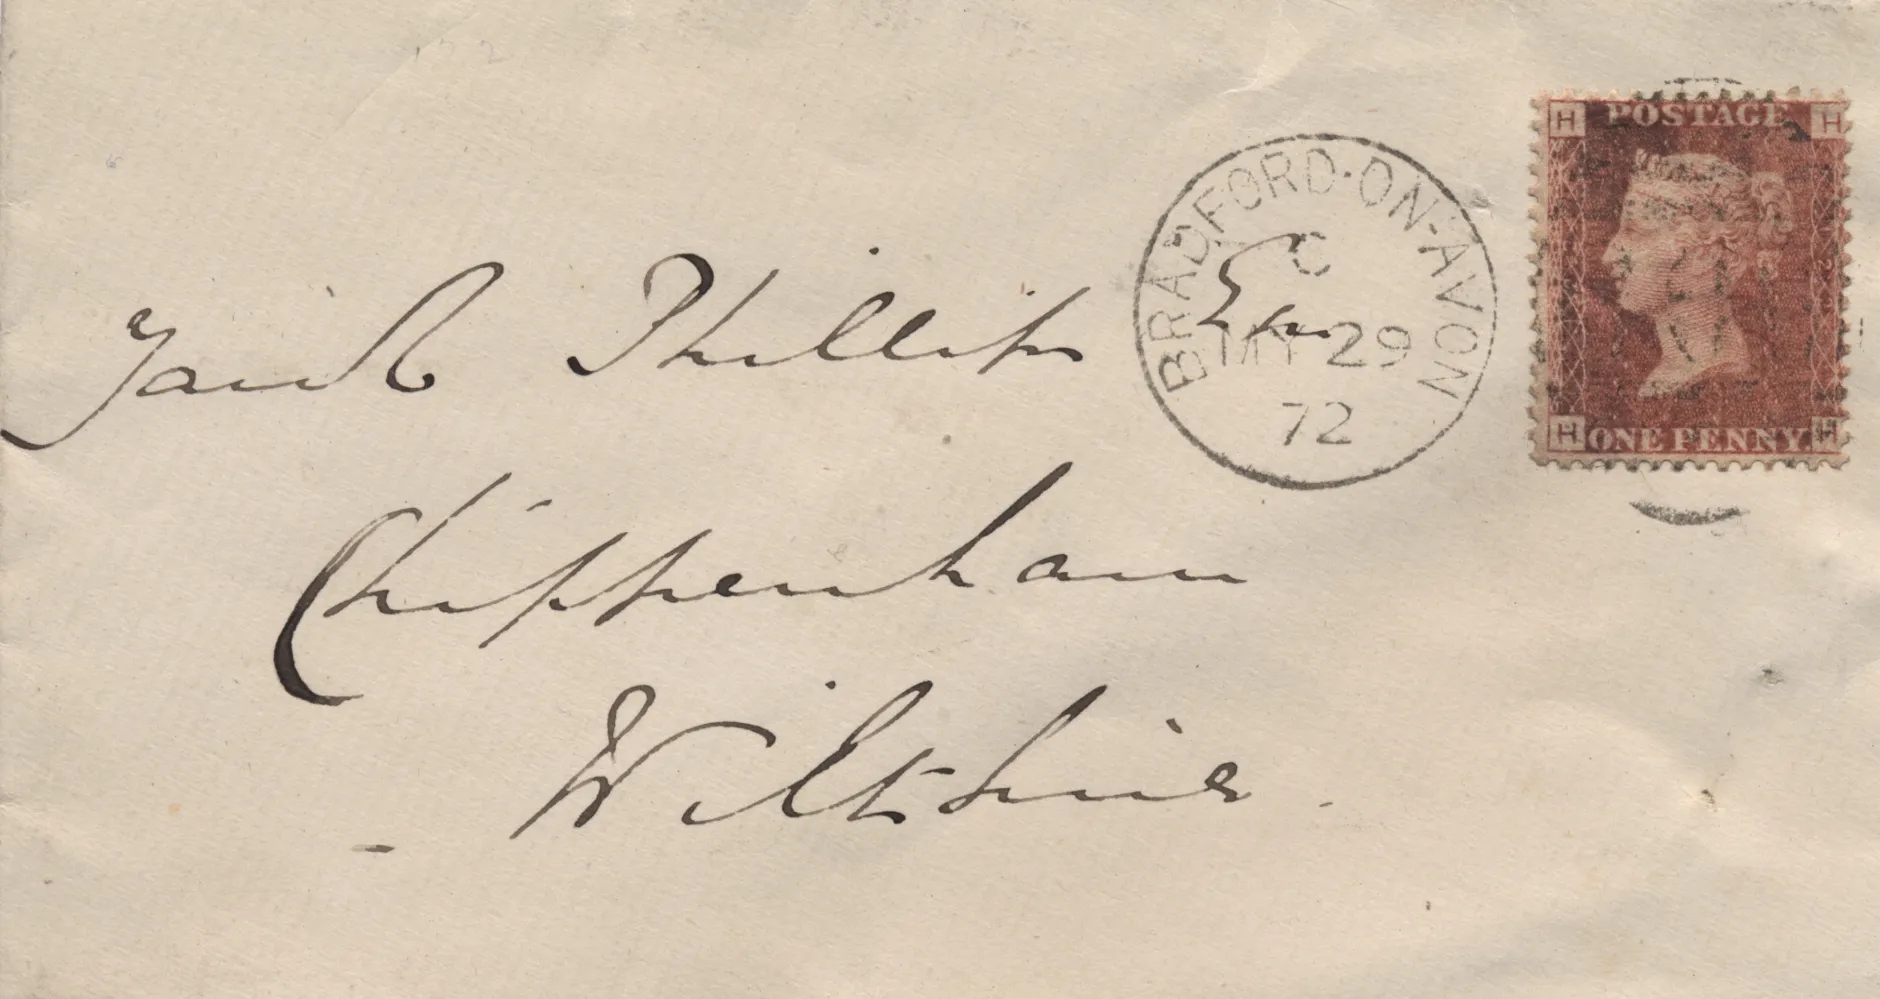 Phillips Esq
Chippenham
Wiltshire.
BRADFORD·ON-AVON
C
MY 29
72
H POSTAGE H
H ONE PENNY H